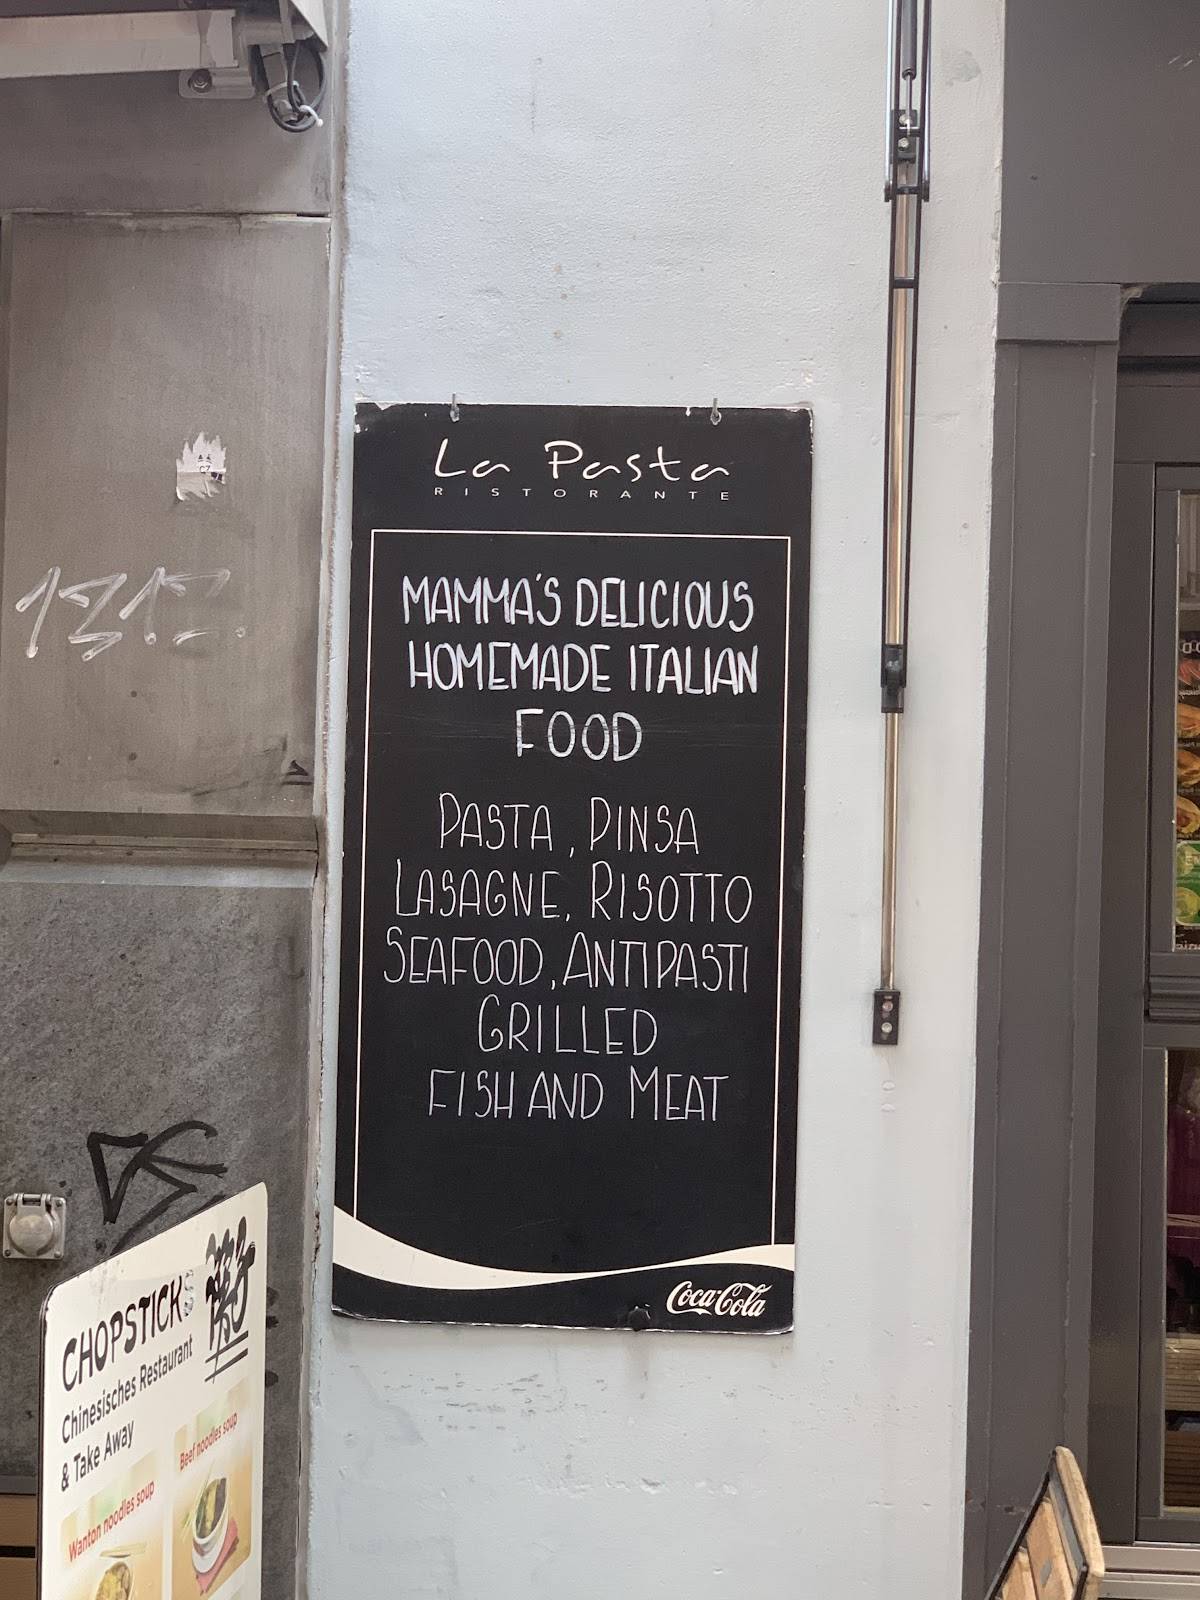 La Pasta
RISTORANTE
MAMMA'S DELICIOUS
HOMEMADE ITALIAN
FOOD
PASTA, PINSA
LASAGNE, RISOTTO
SEAFOOD, ANTIPASTI
GRILLED
FISH AND MEAT
Coca-Cola
CHOPSTICKS
Chinesisches Restaurant
& Take Away
Wanton noodles soup
Beef noodles soup
1312